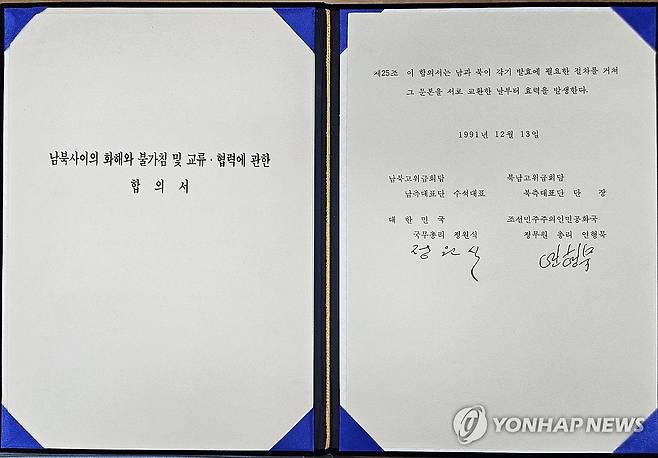 남북사이의 화해와 불가침 및 교류·협력에 관한
합 의 서
제25조 이 합의서는 남과 북이 각기 발효에 필요한 절차를 거쳐
그 문본을 서로 교환한 날부터 효력을 발생한다.
1991년 12월 13일
남북고위급회담
남측대표단 수석대표
대 한 민 국
국무총리 정원식
정원식
북남고위급회담
북측대표단 단 장
조선민주주의인민공화국
정무원 총리 연형묵
연형묵
YONHAP NEWS